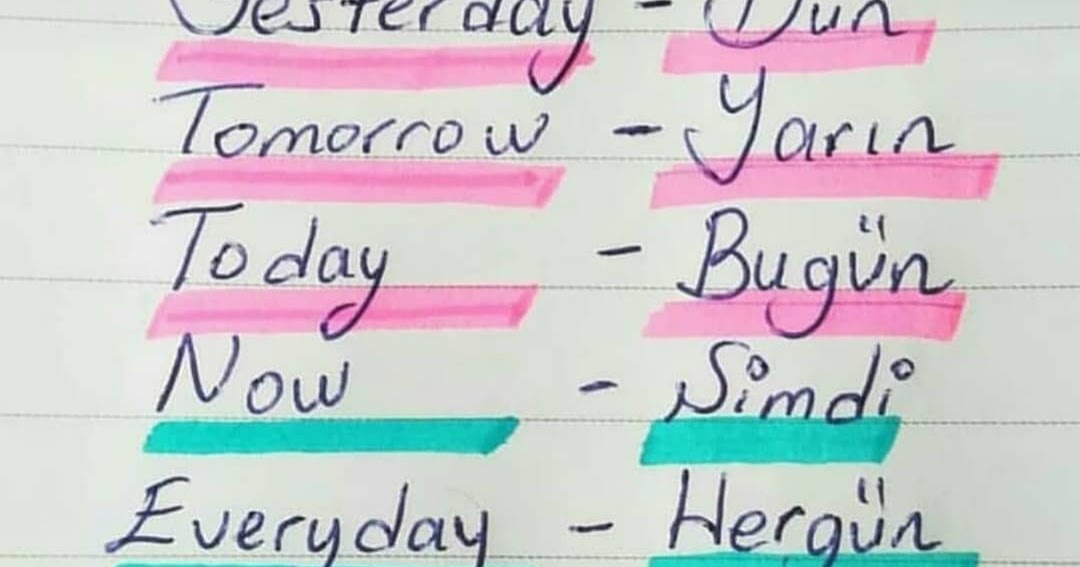 Yesterday - Dün
Tomorrow - Yarın
Today - Bugün
Now - Simdi
Everyday - Hergün